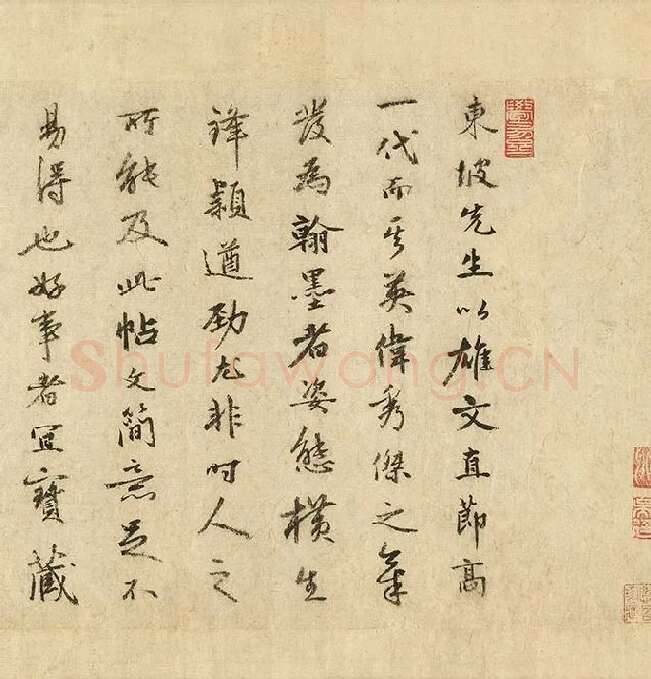 東坡先生以雄文直節高
一代而其英偉秀傑之氣
發為翰墨者姿態橫生
鋒穎遒勁尤非時人之
所能及此帖文簡意足不
易得也好事者宜寶藏
ShufaWang.CN